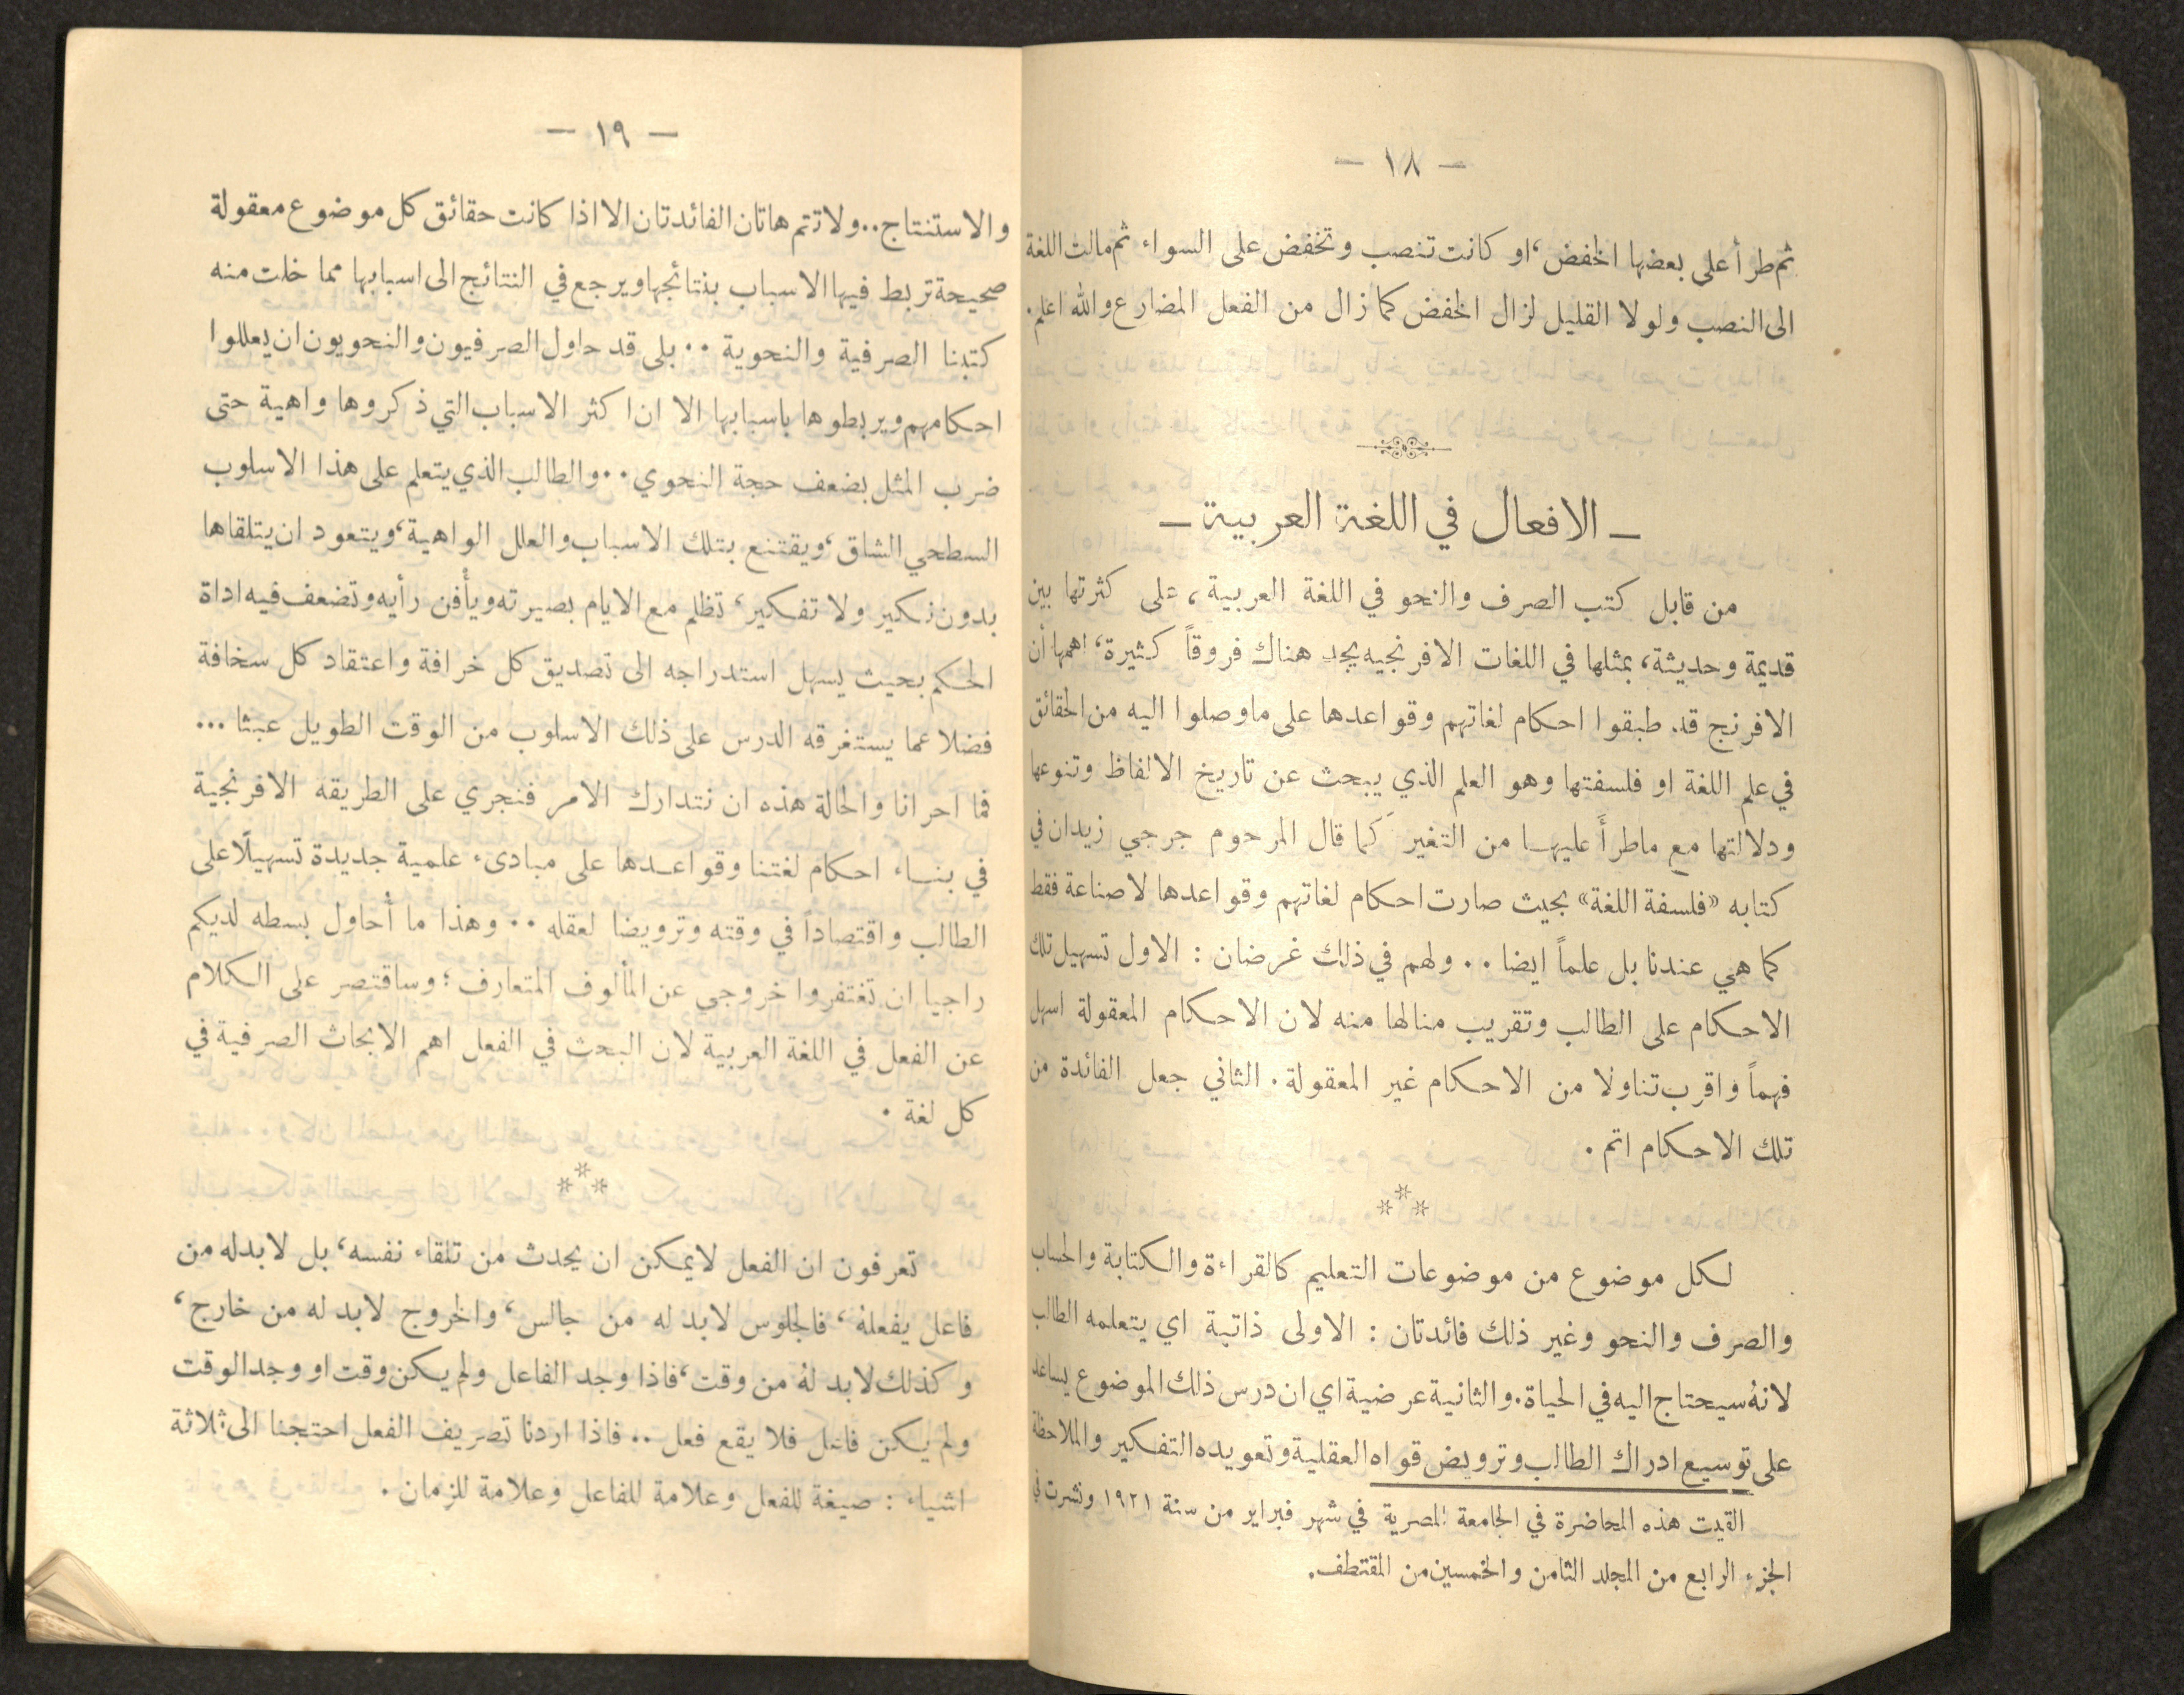 — ١٨ —
ثم طرأ على بعضها الخفض، او كانت تنصب وتخفض على السواء ثم مالت اللغة
الى النصب ولولا القليل لزال الخفض كما زال من الفعل المضارع والله اعلم.
— الافعال في اللغة العربية —
من قابل كتب الصرف والنحو في اللغة العربية، على كثرتها بين
قديمة وحديثة، بمثلها في اللغات الافرنجيه يجد هناك فروقاً كثيرة، اهمها أن
الافرنج قد طبقوا احكام لغاتهم وقواعدها على ما وصلوا اليه من الحقائق
في علم اللغة او فلسفتها وهو العلم الذي يبحث عن تاريخ الالفاظ وتنوعها
ودلالتها مع ماطرأَ عليهـا من التغير كما قال المرحوم جرجي زيدان في
كتابه «فلسفة اللغة» بحيث صارت احكام لغاتهم وقواعدها لا صناعة فقط
كما هي عندنا بل علماً ايضا .. ولهم في ذلك غرضان : الاول تسهيل تلك
الاحكام على الطالب وتقريب منالها منه لان الاحكام المعقولة اسهل
فهماً واقرب تناولا من الاحكام غير المعقولة . الثاني جعل الفائدة من
تلك الاحكام اتم .
***
لكل موضوع من موضوعات التعليم كالقراءة والكتابة والحساب
والصرف والنحو وغير ذلك فائدتان : الاولى ذاتية اي يتعلمه الطالب
لانهُ سيحتاج اليه في الحياة . والثانية عرضية اي ان درس ذلك الموضوع يساعد
على توسيع ادراك الطالب وترويض قواه العقلية وتعويده التفكير والملاحظة
القيت هذه المحاضرة في الجامعة المصرية في شهر فبراير من سنة ١٩٢١ ونشرت في
الجزء الرابع من المجلد الثامن والخمسين من المقتطف.
— ١٩ —
والاستنتاج .. ولا تتم هاتان الفائدتان الا اذا كانت حقائق كل موضوع معقولة
صحيحة تربط فيها الاسباب بنتائجها ويرجع في النتائج الى اسبابها مما خلت منه
كتبنا الصرفية والنحوية .. بلى قد حاول الصرفيون والنحويون ان يعللوا
احكامهم ويربطوها باسبابها الا ان اكثر الاسباب التي ذكروها واهية حتى
ضرب المثل بضعف حجة النحوي .. والطالب الذي يتعلم على هذا الاسلوب
السطحي الشاق، ويقتنع بتلك الاسباب والعلل الواهية، ويتعود ان يتلقاها
بدون نكير ولا تفكير، تظلم مع الايام بصيرته ويأْفن رأيه وتضعف فيه اداة
الحكم بحيث يسهل استدراجه الى تصديق كل خرافة واعتقاد كل سخافة
فضلا عما يستغرقه الدرس على ذلك الاسلوب من الوقت الطويل عبثا ...
فما احرانا والحالة هذه ان نتدارك الامر فنجري على الطريقه الافرنجية
في بنـاء احكام لغتنا وقواعـدها على مبادىء علمية جديدة تسهيلًا على
الطالب واقتصاداً في وقته وترويضا لعقله .. وهذا ما أُحاول بسطه لديكم
راجيا ان تغتفروا خروجي عن المألوف المتعارف ؛ وساقتصر على الكلام
عن الفعل في اللغة العربية لان البحث في الفعل اهم الابحاث الصرفية في
كل لغة .
***
تعرفون ان الفعل لا يمكن ان يحدث من تلقاء نفسه، بل لا بدله من
فاعل يفعلهُ، فالجلوس لا بد له من جالس، والخروج لا بد له من خارج،
وكذلك لا بد لهُ من وقت، فاذا وجد الفاعل ولم يكن وقت او وجد الوقت
ولم يكن فاعل فلا يقع فعل .. فاذا اردنا تصريف الفعل احتجنا الى ثلاثة
اشياء : صيغة للفعل وعلامة للفاعل وعلامة للزمان .